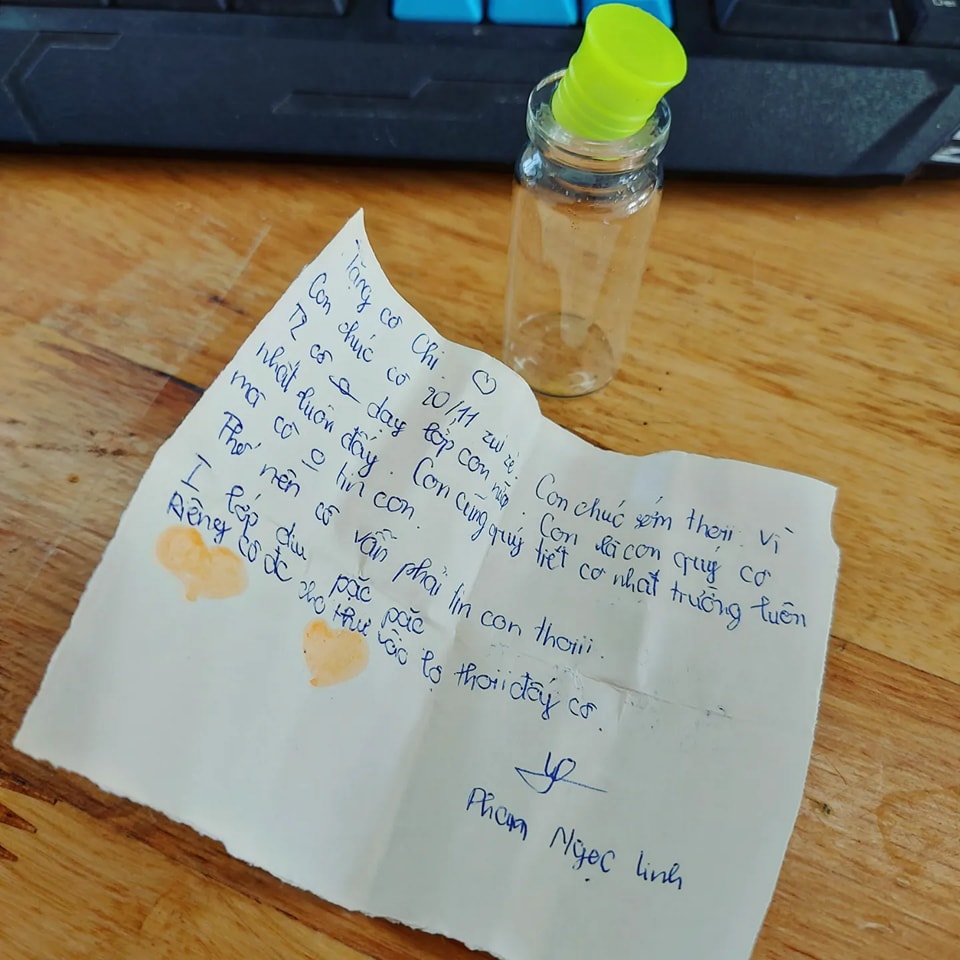 Tặng cô Chi ♡
Con chúc cô 20/11 zui zẻ. Con chúc sớm thoii. Vì
T2 cô dạy lớp con nữa. Con là con quý cô
nhất luôn đấy. Con cũng quý tiết cô nhất trường luôn
mà cô o tin con.
Thế nên cô vẫn phải tin con thoiii.
I lớp diu pặc pặc
Riêng cô đc cho thư vào lọ thoii đấy cô.
Phạm Ngọc Linh